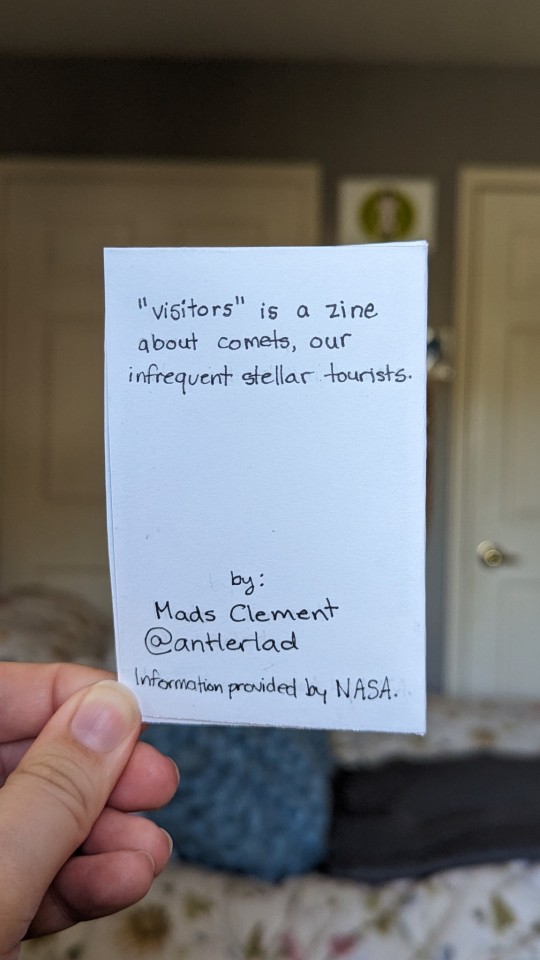 "visitors" is a zine
about comets, our
infrequent stellar tourists.
by:
Mads Clement
@antlerlad
Information provided by NASA.